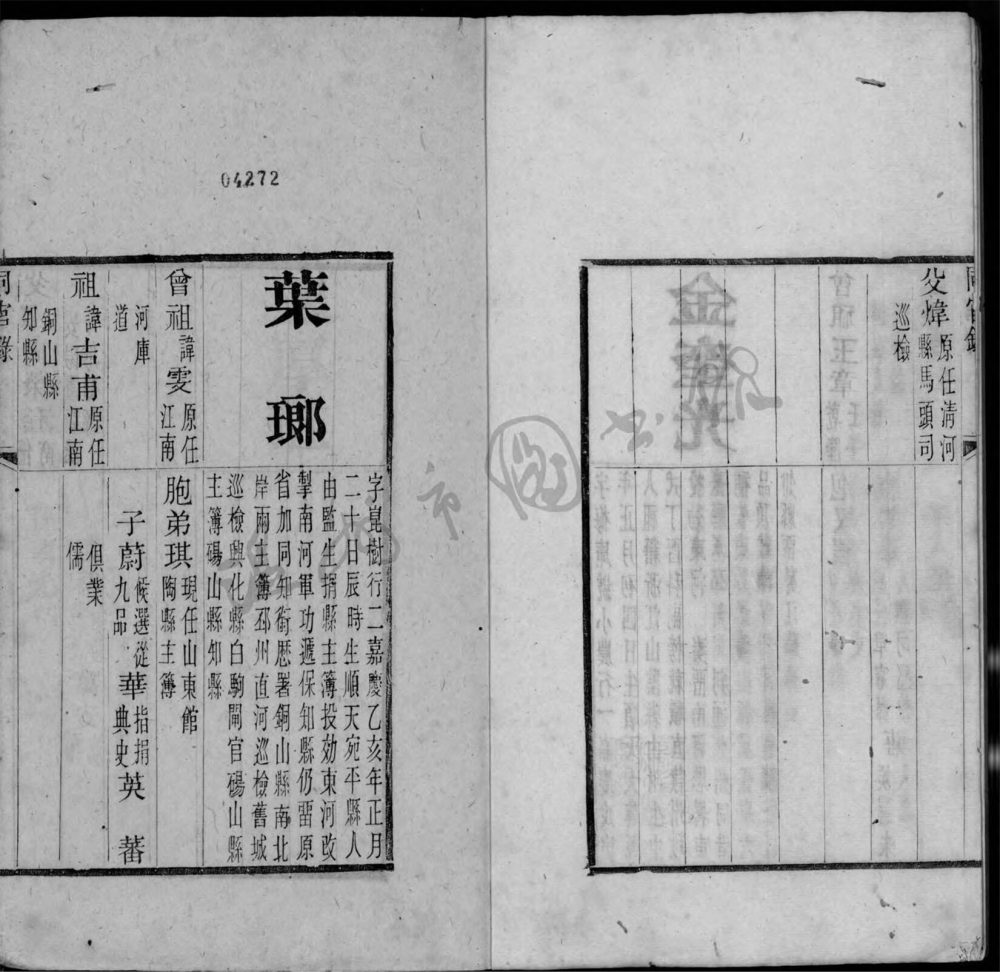 同官錄
父煒原任清河
縣馬頭司
巡檢
04272
葉瑯
字崑樹行二嘉慶乙亥年正月
二十日辰時生順天宛平縣人
由監生捐縣主簿投効東河改
掣南河軍功遞保知縣仍畱原
省加同知銜歷署銅山縣南北
岸兩主簿邳州直河巡檢舊城
巡檢興化縣白駒閘官碭山縣
主簿碭山縣知縣
曾祖諱雯原任
江南
河庫
道
祖諱吉甫原任
江南
銅山縣
知縣
胞弟琪現任山東館
陶縣主簿
子蔚候選從
九品
華指捐
典史
英 蕃
俱業
儒
同官錄